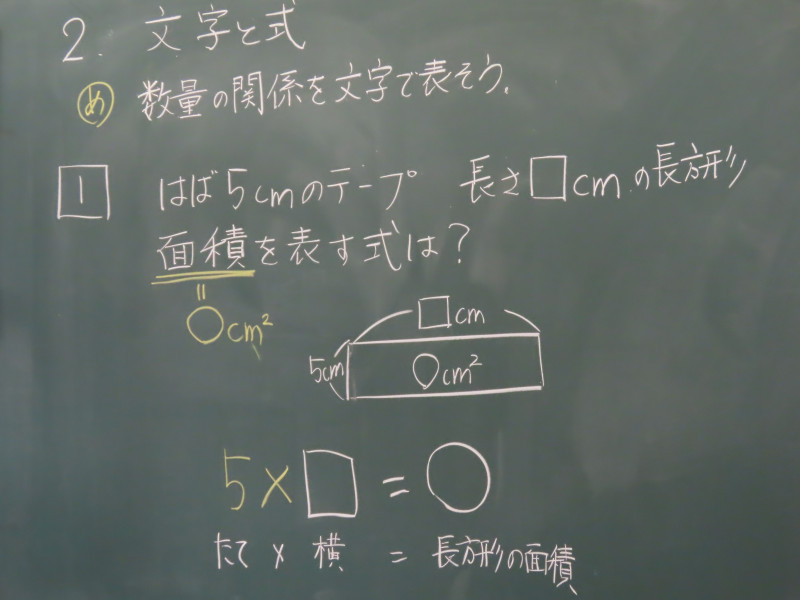 2. 文字と式
め 数量の関係を文字で表そう.
1 はば5cmのテープ 長さ□cmの長方形
面積を表す式は?
=
○cm²
□cm
5cm ○cm²
5×□=○
たて × 横 = 長方形の面積